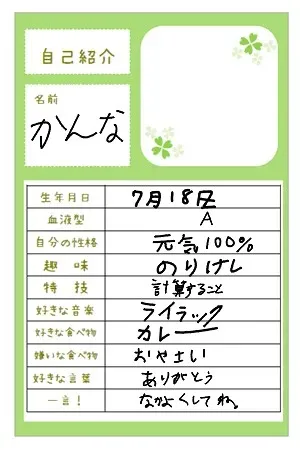 自己紹介
名前
かんな
生年月日 7月18日
血液型 A
自分の性格 元気100%
趣味 のりけし
特技 計算すること
好きな音楽 ライラック
好きな食べ物 カレー
嫌いな食べ物 おやさい
好きな言葉 ありがとう
一言! なかよくしてね。